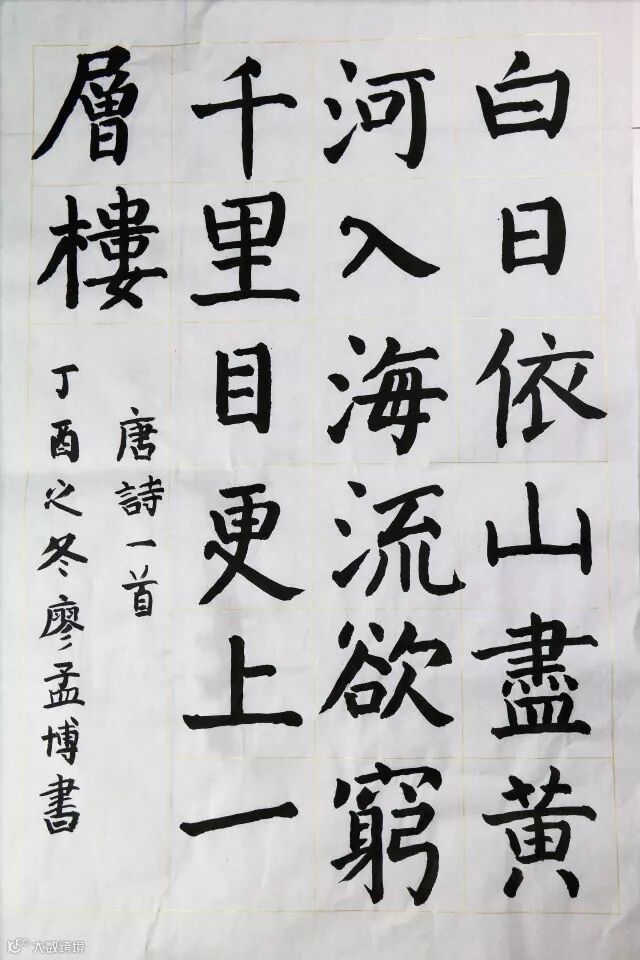 白日依山盡黃
河入海流欲窮
千里目更上一
層樓
唐詩一首
丁酉之冬廖孟博書
大数跨境